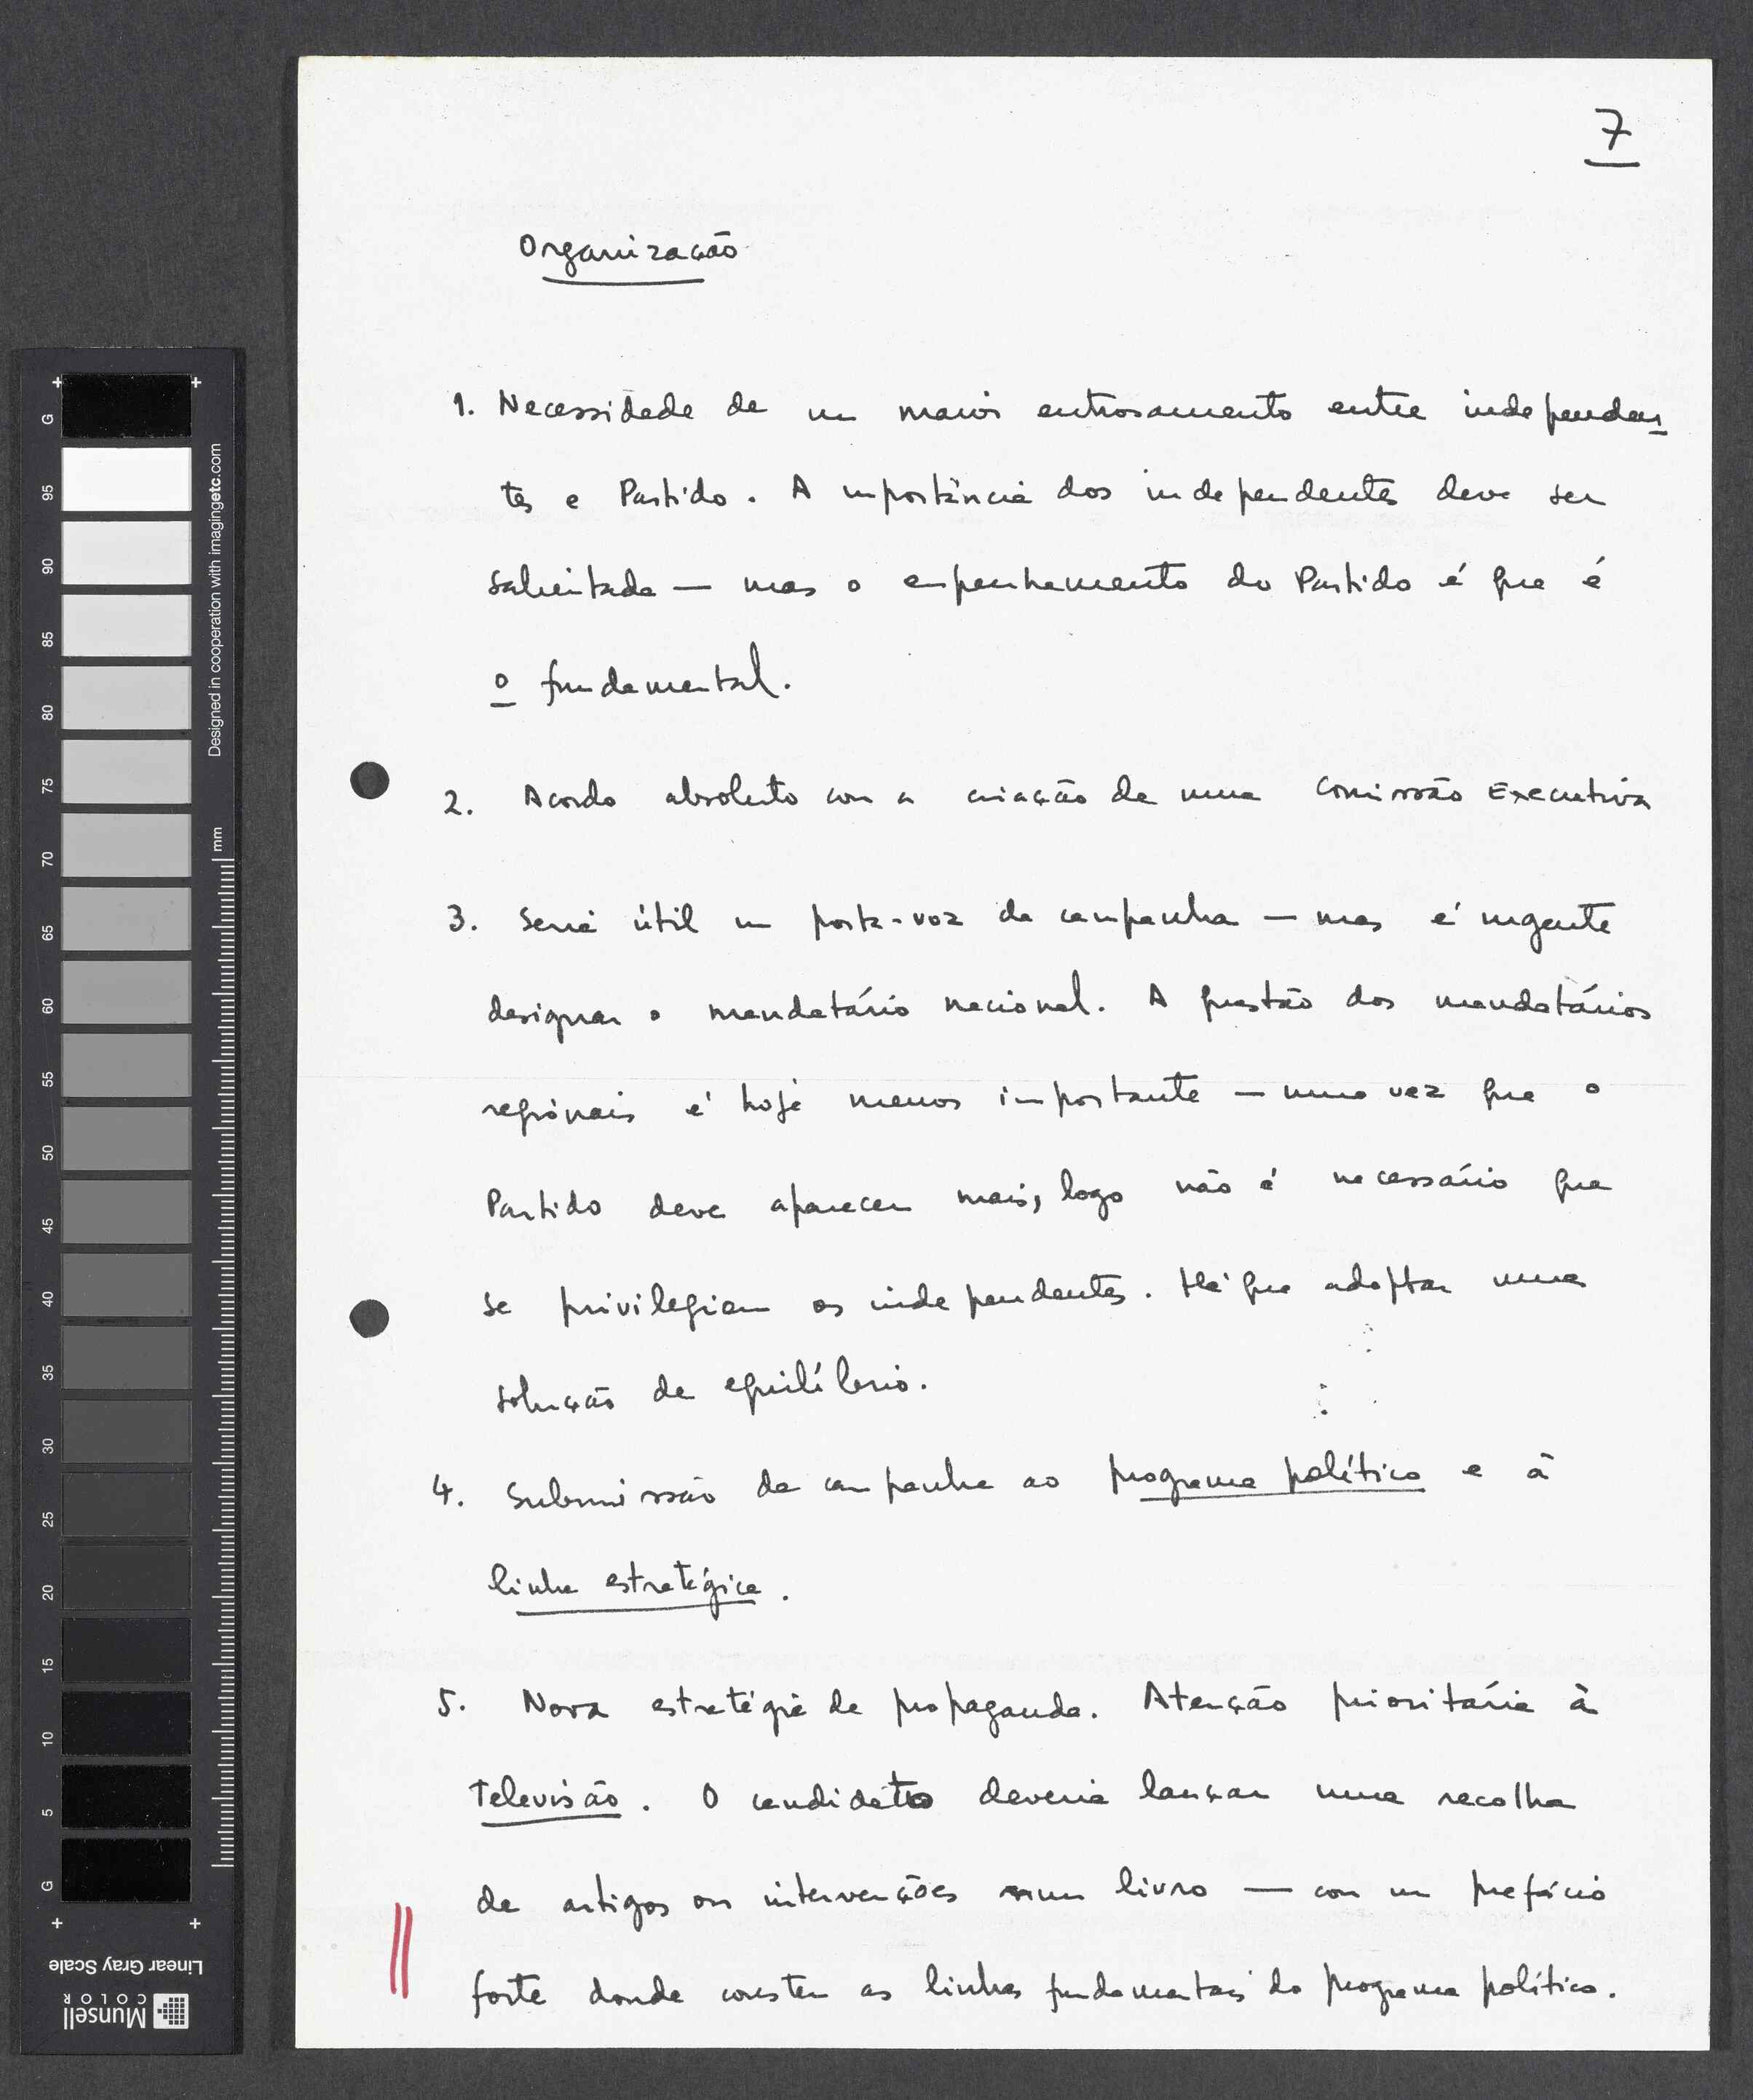 7
Organização
1. Necessidade de um maior entrosamento entre independen-
tes e Partido. A importância dos independentes deve ser
salientada — mas o empenhamento do Partido é que é
o fundamental.
2. Acordo absoluto com a criação de uma Comissão Executiva
3. Seria útil um porta-voz da campanha — mas é urgente
designar o mandatário nacional. A questão dos mandatários
regionais é hoje menos importante — uma vez que o
Partido deve aparecer mais, logo não é necessário que
se privilegiem os independentes. Há que adoptar uma
solução de equilíbrio.
4. Submissão da campanha ao programa político e à
linha estratégica.
5. Nova estratégia de propaganda. Atenção prioritária à
Televisão. O candidato deveria lançar uma recolha
de artigos ou intervenções num livro — com um prefácio
forte donde constem as linhas fundamentais do programa político.
+ +
G
95
90
85
80
75
70
65
60
55
50
45
40
35
30
25
20
15
10
5
G
+ +
Designed in cooperation with imagingetc.com
mm
Linear Gray Scale
Munsell
COLOR